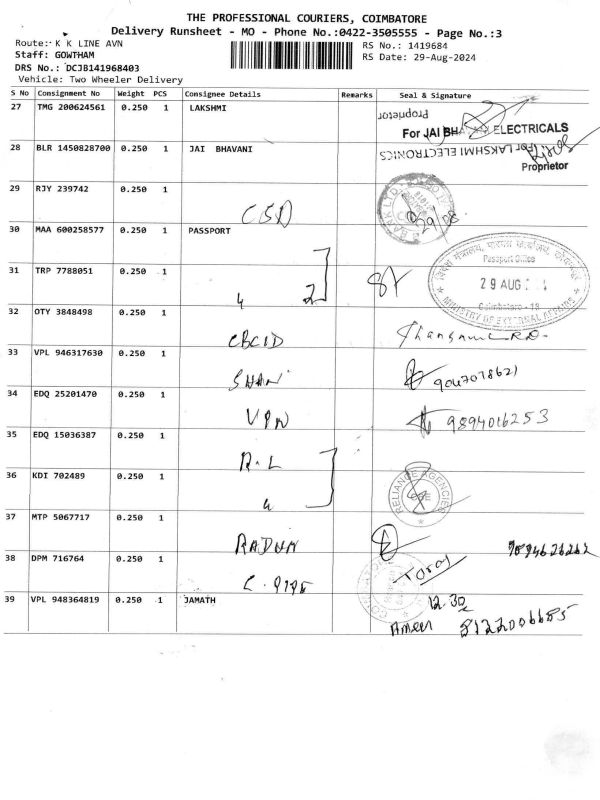 THE PROFESSIONAL COURIERS, COIMBATORE
Delivery Runsheet - MO - Phone No.:0422-3505555 - Page No.:3
Route: K K LINE AVN
RS No.: 1419684
Staff: GOWTHAM
RS Date: 29-Aug-2024
DRS No.: DCJB141968403
Vehicle: Two Wheeler Delivery
S No Consignment No Weight PCS Consignee Details Remarks Seal & Signature
27 TMG 200624561 0.250 1 LAKSHMI
Proprietor
For JAI BHA ELECTRICALS
28 BLR 1450828700 0.250 1 JAI BHAVANI
For LAKSHMI ELECTRONICS
Proprietor
29 RJY 239742 0.250 1
CSD
29/08
30 MAA 600258577 0.250 1 PASSPORT
Passport Office
29 AUG
Coimbatore - 18
MINISTRY OF EXTERNAL AFFAIRS
31 TRP 7788051 0.250 1
32 OTY 3848498 0.250 1
CBCID
33 VPL 946317630 0.250 1
SHAN
9047078621
34 EDQ 25201470 0.250 1
VPN
9894016253
35 EDQ 15036387 0.250 1
R.L
36 KDI 702489 0.250 1
RELIANCE AGENCIES
CBE
37 MTP 5067717 0.250 1
RADHA
38 DPM 716764 0.250 1
39 VPL 948364819 0.250 1 JAMATH
12.30
Ameer 8122006685